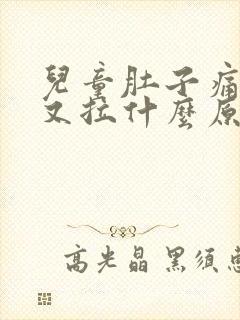 兒童肚子痛
又拉什麼原
高光晶 黑須惠